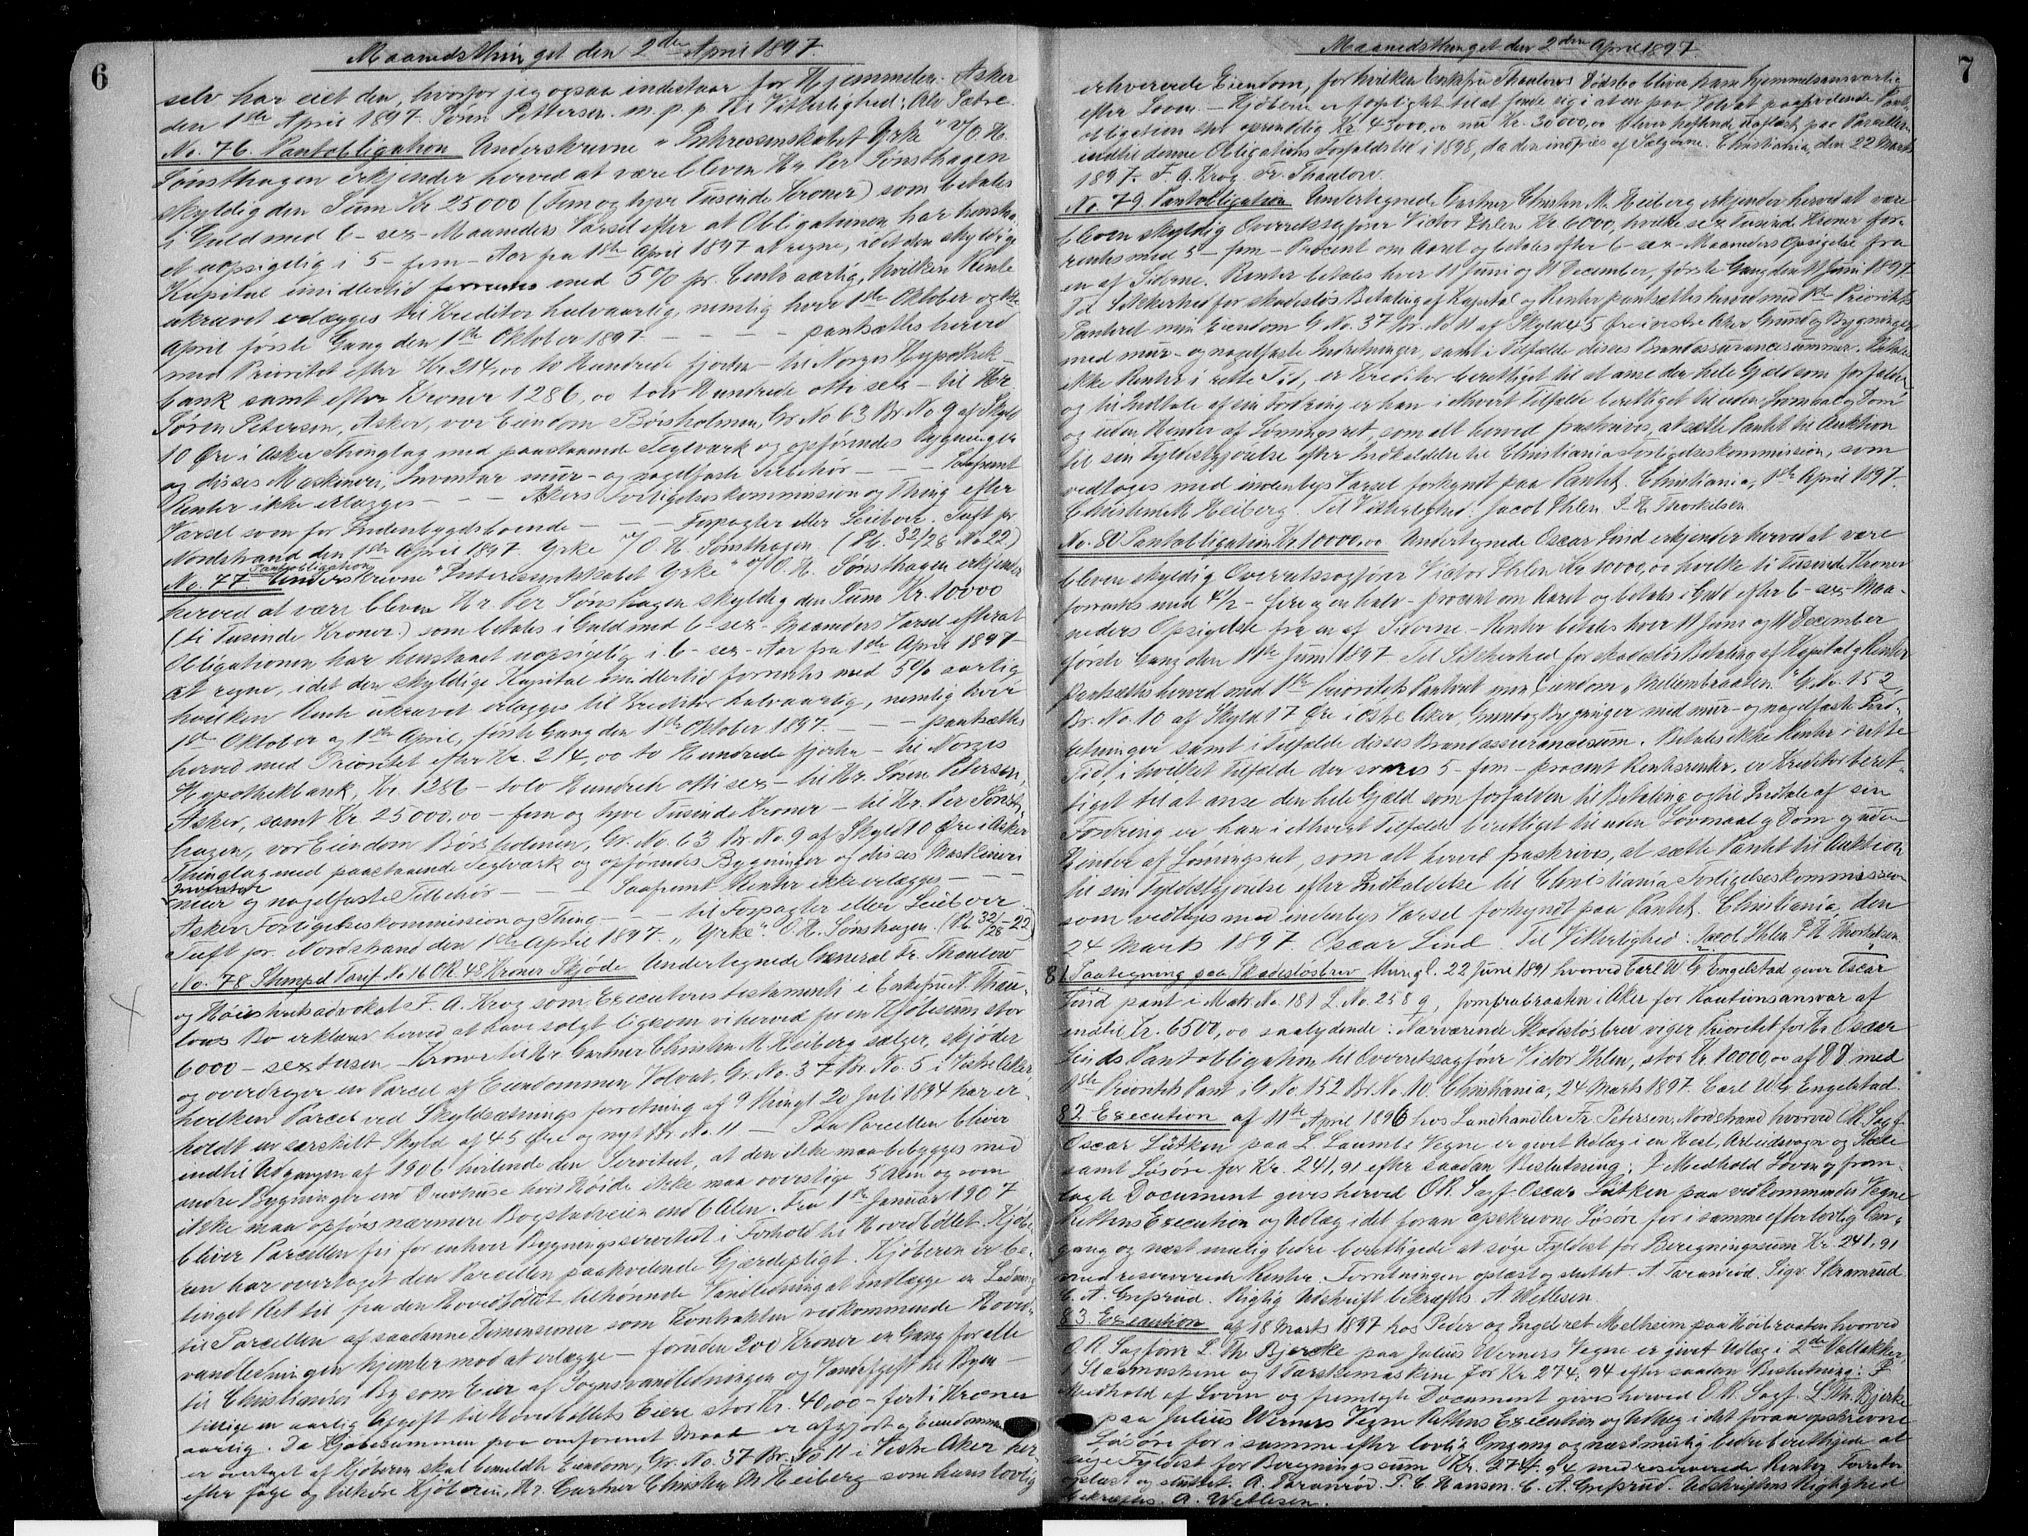 6
Maanedsthinget den 2den April 1897.
selv har eiet den, hvorfor jeg ogsaa indestaar for Hjemmelen. Asker
den 1ste April 1897. Søren Pettersen. m. p. p. Til Vitterlighed: Ole Sætre.
No. 76. Pantobligation Underskrevne "Interessentskabet Yrke" v/O. H.
Sønsthagen erkjender herved at være bleven Hr. Per Sønsthagen
skyldig den Sum Kr. 25000 (fem og tyve Tusinde Kroner) som betales
i Guld med 6 - sex - Maaneders Varsel efter at Obligationen har henstaa-
et uopsigelig i 5 - fem - Aar fra 1ste April 1897 at regne, idet den skyldige
Kapital imidlertid forrentes med 5% pr. Cento aarlig, hvilken Rente
ukrævet erlægges til Kreditor halvaarlig, nemlig hver 1ste Oktober og 1ste
April første Gang den 1ste Oktober 1897. - - - pantsættes herved
med Prioritet efter Kr. 214,00 to Hundrede fjorten - til Norges Hypothek-
bank samt efter Kroner 1286,00 tolv Hundrede otti sex - til Hr.
Søren Petersen, Asker, vor Eiendom Børsholmen, Gr. No 63 Br. No 9 af Skyld
10 Øre i Asker Thinglag med paastaaende Teglværk og opførendes Bygninger
og disses Maskineri, Inventar mur- og nagelfaste Tilbehør - - - Saafremt
Renter ikke erlægges - - - Akers Forligelseskommission og Thing efter
Varsel som for Indenbygdsboende - - - Forpagter eller Leieboer. Tuft pr.
Nordstrand den 1ste April 1897. Yrke v/O. H. Sønsthagen (Pb. 32/28 No 22)
No. 77. Pantobligation Underskrevne "Interessentskabet Yrke" v/O. H. Sønsthagen erkjender
herved at være bleven Hr. Per Sønsthagen skyldig den Sum Kr. 10000
(ti Tusinde Kroner) som betales i Guld med 6 - sex - Maaneders Varsel efterat
Obligationen har henstaaet uopsigelig i 6 - sex - Aar fra 1ste April 1897
at regne, idet den skyldige Kapital imidlertid forrentes med 5% aarlig
hvilken Rente ukrævet erlægges til Kreditor halvaarlig, nemlig hver
1ste Oktober og 1ste April, første Gang den 1ste Oktober 1897. - - - pantsættes
herved med Prioritet efter Kr. 214,00 to Hundrede fjorten - til Norges
Hypothekbank, Kr. 1286 - tolv Hundrede otti sex - til Hr. Søren Petersen,
Asker, samt Kr. 25000,00 - fem og tyve Tusinde Kroner - til Hr. Per Sønst-
hagen, vor Eiendom Børsholmen, Gr. No. 63 Br. No 9 af Skyld 10 Øre i Asker
Thinglag med paastaaende Teglværk og opførendes Bygninger og disses Maskineri
Inventar
mur og nagelfaste Tilbehør - - - Saafremt Renter ikke erlægges - - -
Asker Forligelseskommission og Thing - - - til Forpagter eller Leieboer
Tuft pr. Nordstrand den 1ste April 1897. "Yrke". O. H. Sønsthagen. (Pb. 32/28-22)
No. 78 Stempel Tarif No 11 OR. 48 Kroner Skjøde Undertegnede General Fr. Thaulow
og Høiesteretsadvokat F. A. Krog som Executores testamenti i Enkefru N. Thau-
lows Bo erklærer herved at have solgt ligesom vi herved for en Kjøbesum stor
6000 - sextusen - Kroner til Hr. Gartner Christen M. Heiberg sælger, skjøder
og overdrager en Parcel af Eiendommen Volvat, Gr. No. 37 Br. No. 5 i Vestre Aker,
hvilken Parcel ved Skyldsætningsforretning af 9 thingl. 20 Juli 1894 har er-
holdt en særskilt Skyld af 45 Øre og nyt Br. No. 11 - Paa Parcellen bliver
indtil Udgangen af 1906 hvilende den Servitut, at den ikke maa bebygges med
andre Bygninger end Drivhuse hvis Høide ikke maa overstige 5 Alen og som
ikke maa opføres nærmere Bogstadveien end 6 Alen. Fra 1ste Januar 1907
bliver Parcellen fri for enhver Bygningsservitut i Forhold til Hovedbøllet. Kjøbe-
ren har overtaget den Parcellen paahvilende Gjærdepligt. Kjøberen er be-
tinget Ret til fra den Hovedbøllet tilhørende Vandledning at indlægge en Ledning
til Parcellen af saadanne Dimensioner som Kontrakten vedkommende Hoved-
vandledningen hjemler mod at erlægge - foruden 200 Kroner en Gang for alle
til Christiania By som Eier af Sognsvandledningen og Vandafgift til Byen -
tillige en aarlig Afgift til Hovedbøllets Eiere stor Kr. 40,00 - forti Kroner
aarlig. Da Kjøbesummen paa omforenet Maade er afgjort og Eiendommen
er overtaget af Kjøberen skal bemeldte Eiendom, Gr. No. 37 Br. No 11 i Vestre Aker her-
efter følge og tilhøre Kjøberen, Hr. Gartner Christen M. Heiberg som hans lovlig
7
Maanedsthinget den 2den April 1897.
erhvervede Eiendom, for hvilken Enkefru Thaulows Dødsbo bliver ham hjemmelsansvarlig
efter Loven. - Kjøberen er forpligtet til at finde sig i at en paa Volvat paahvilende Pant-
obligation stor oprindelig Kr. 45000,00 nu Kr. 30000,00 bliver heftende uaflæst paa Parcellen
indtil denne Obligations Forfaldstid i 1898, da den indfries af Sælgerne. Christiania, den 22 Marts
1897. F. A. Krog. Fr. Thaulow.
No. 79 Pantobligation Undertegnede Gartner Christen M. Heiberg erkjender herved at være
bleven skyldig Overretssagfører Victor Ihlen Kr 6000, hvilke sex Tusinde Kroner for-
rentes med 5 - fem - Procent om Aaret og betales efter 6 - sex - Maaneders Opsigelse fra
en af Siderne. Renter betales hver 11 Juni og 11 December, første Gang den 11 Juni 1897.
Til Sikkerhed for skadesløs Betaling af Kapital og Renter pantsættes herved med 1ste Prioritets
Panteret min Eiendom G. No. 37 Br. No 11 af Skyld 45 Øre i Vestre Aker Grund og Bygninger
med mur- og nagelfaste Indretninger, samt i Tilfælde disses Brandassurancesummer. Betales
ikke Renter i rette Tid, er Kreditor berettiget til at anse den hele Gjæld som forfalden
og til Indtale af sin Fordring er han i ethvert Tilfælde berettiget til uden Lovmaal og Dom
og uden Hinder af Løsningsret, som alt herved fraskrives, at sætte Pantet til Auktion
til sin Fyldestgjørelse efter Indkaldelse til Christiania Forligelseskommission, som
vedtages med indenbys Varsel forkyndt paa Pantet. Christiania, 1ste April 1897.
Christen M. Heiberg. Til Vitterlighed: Jacob Ihlen. P. H. Thorkilsen.
No. 80 Pantobligation Kr 10000,00 Undertegnede Oscar Lind erkjender herved at være
bleven skyldig Overretssagfører Victor Ihlen Kr. 10000,00 hvilke ti Tusinde Kroner
forrentes med 4 1/2 - fire og en halv - procent om Aaret og betales i Guld efter 6 - sex - Maa-
neders Opsigelse fra en af Siderne. - Renter betales hver 11 Juni og 11 December
første Gang den 11te Juni 1897. Til Sikkerhed for skadesløs Betaling af Kapital og Renter
pantsættes herved med 1ste Prioritets Panteret min Eiendom "Mellembraaten" G. No. 152,
Br. No. 10 af Skyld 17 Øre i Østre Aker, Grund og Bygninger med mur- og nagelfaste Ind-
retninger samt i Tilfælde disses Brandassurancesum. Betales ikke Renter i rette
Tid, i hvilket Tilfælde der svares 5 - fem - procent Rentesrenter, er Kreditor beret-
tiget til at anse den hele Gjæld som forfalden til Betaling og til Indtale af sin
Fordring er han i ethvert Tilfælde berettiget til uden Lovmaal og Dom og uden
Hinder af Løsningsret, som alt herved fraskrives, at sætte Pantet til Auktion
til sin Fyldestgjørelse efter Indkaldelse til Christiania Forligelseskommission
som vedtages med indenbys Varsel forkyndt paa Pantet. Christiania, den
24 Marts 1897. Oscar Lind. Til Vitterlighed: Jacob Ihlen P. H. Thorkilsen.
81 Paategning paa Skadesløsbrev thingl. 22 Juni 1891 hvorved Carl W. G. Engelstad giver Oscar
Lind pant i Matr. No. 181 L. No. 258 g, Jomfrubraaten i Aker for Kautionsansvar af
indtil Kr. 6500,00 saalydende: Nærværende Skadesløsbrev viger Prioritet for Hr. Oscar
Linds Pantobligation til Overretssagfører Victor Ihlen, stor Kr 10000,00 af D. D. med
1ste Prioritets Pant i G. No. 152 Br. No. 10. Christiania, 24 Marts 1897. Carl W. G. Engelstad.
82. Execution af 11te April 1896 hos Landhandler Fr. Petersen, Nordstrand hvorved O. R. Sagf.
Oscar Lütken paa L. Laumbs Vegne er givet Udlæg i en Hest, Arbeidsvogn og Slæde
samt Løsøre for Kr. 241,91 efter saadan Beslutning: I Medhold Loven og frem-
lagte Document gives herved O. R. Sagf. Oscar Lütken paa vedkommendes Vegne
Rettens Execution og Udlæg i det foran opskrevne Løsøre for i samme efter lovlig Om-
gang og næst mulig bedre berettigede at søge Fyldest for Beregningssum Kr. 241,91
med reserverede Renter. Forretningen oplæst og sluttet. A. Taranrød. Sigv. Skramrud
C. A. Grefsrud. Rigtig Udskrift bekræftes A. Wetlesen.
83. Execution af 18 Marts 1897 hos Peder og Ingebret Melheim paa Høibraaten hvorved
O. R. Sagfører L. Th. Bjercke paa Julius Werners Vegne er givet Udlæg i 2de Vallakker,
Slaamaskine og 1 Tærskemaskine for Kr 274,94 efter saadan Beslutning: I
Medhold af Loven og fremlagte Document gives herved O. R. Sagf. L. Th. Bjerke
paa Julius Werners Vegne Rettens Execution og Udlæg i det foran opskrevne
Løsøre for i samme efter lovlig Omgang og næst mulig bedre berettigede at
søge Fyldest for Beregningssum Kr. 274,94 med reserverede Renter. Forretn.
oplæst og sluttet. A. Taranrød. P. C. Hansen. C. A. Grefsrud. Udskriftens Rigtighed
bekræftes. A. Wetlesen.